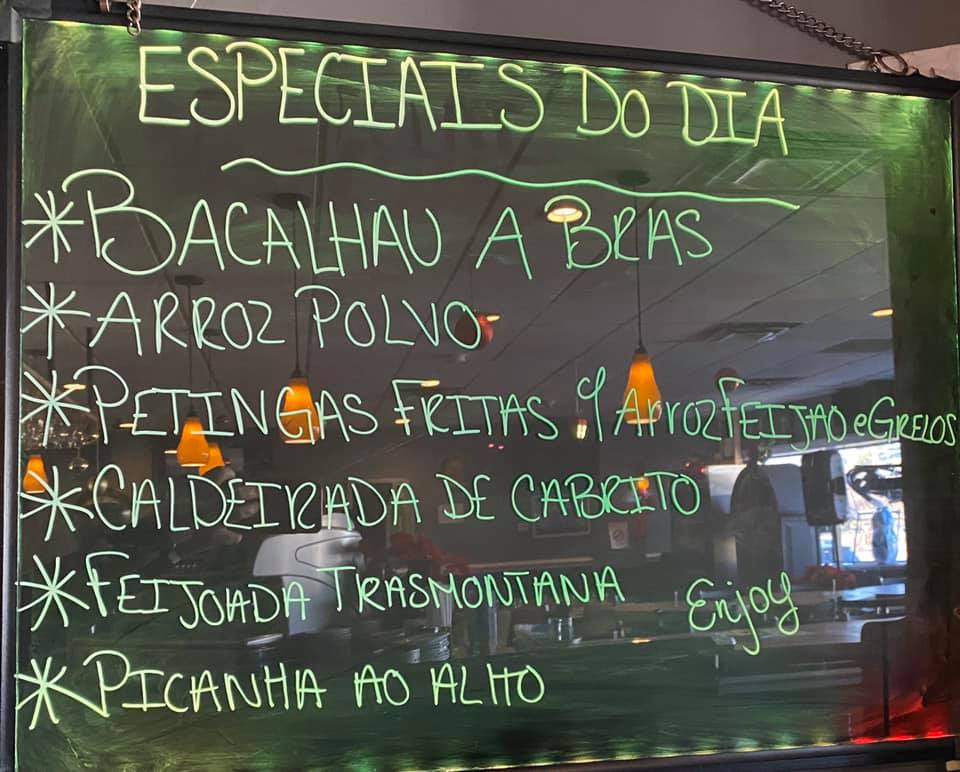 ESPECIAIS DO DIA
*BACALHAU A BRAS
*ARROZ POLVO
*PETINGAS FRITAS Y ArrozFEIJAO e GRELOS
*CALDEIRADA DE CABRITO
*FEIJOADA TRASMONTANA Enjoy
*PICANHA AO ALHO